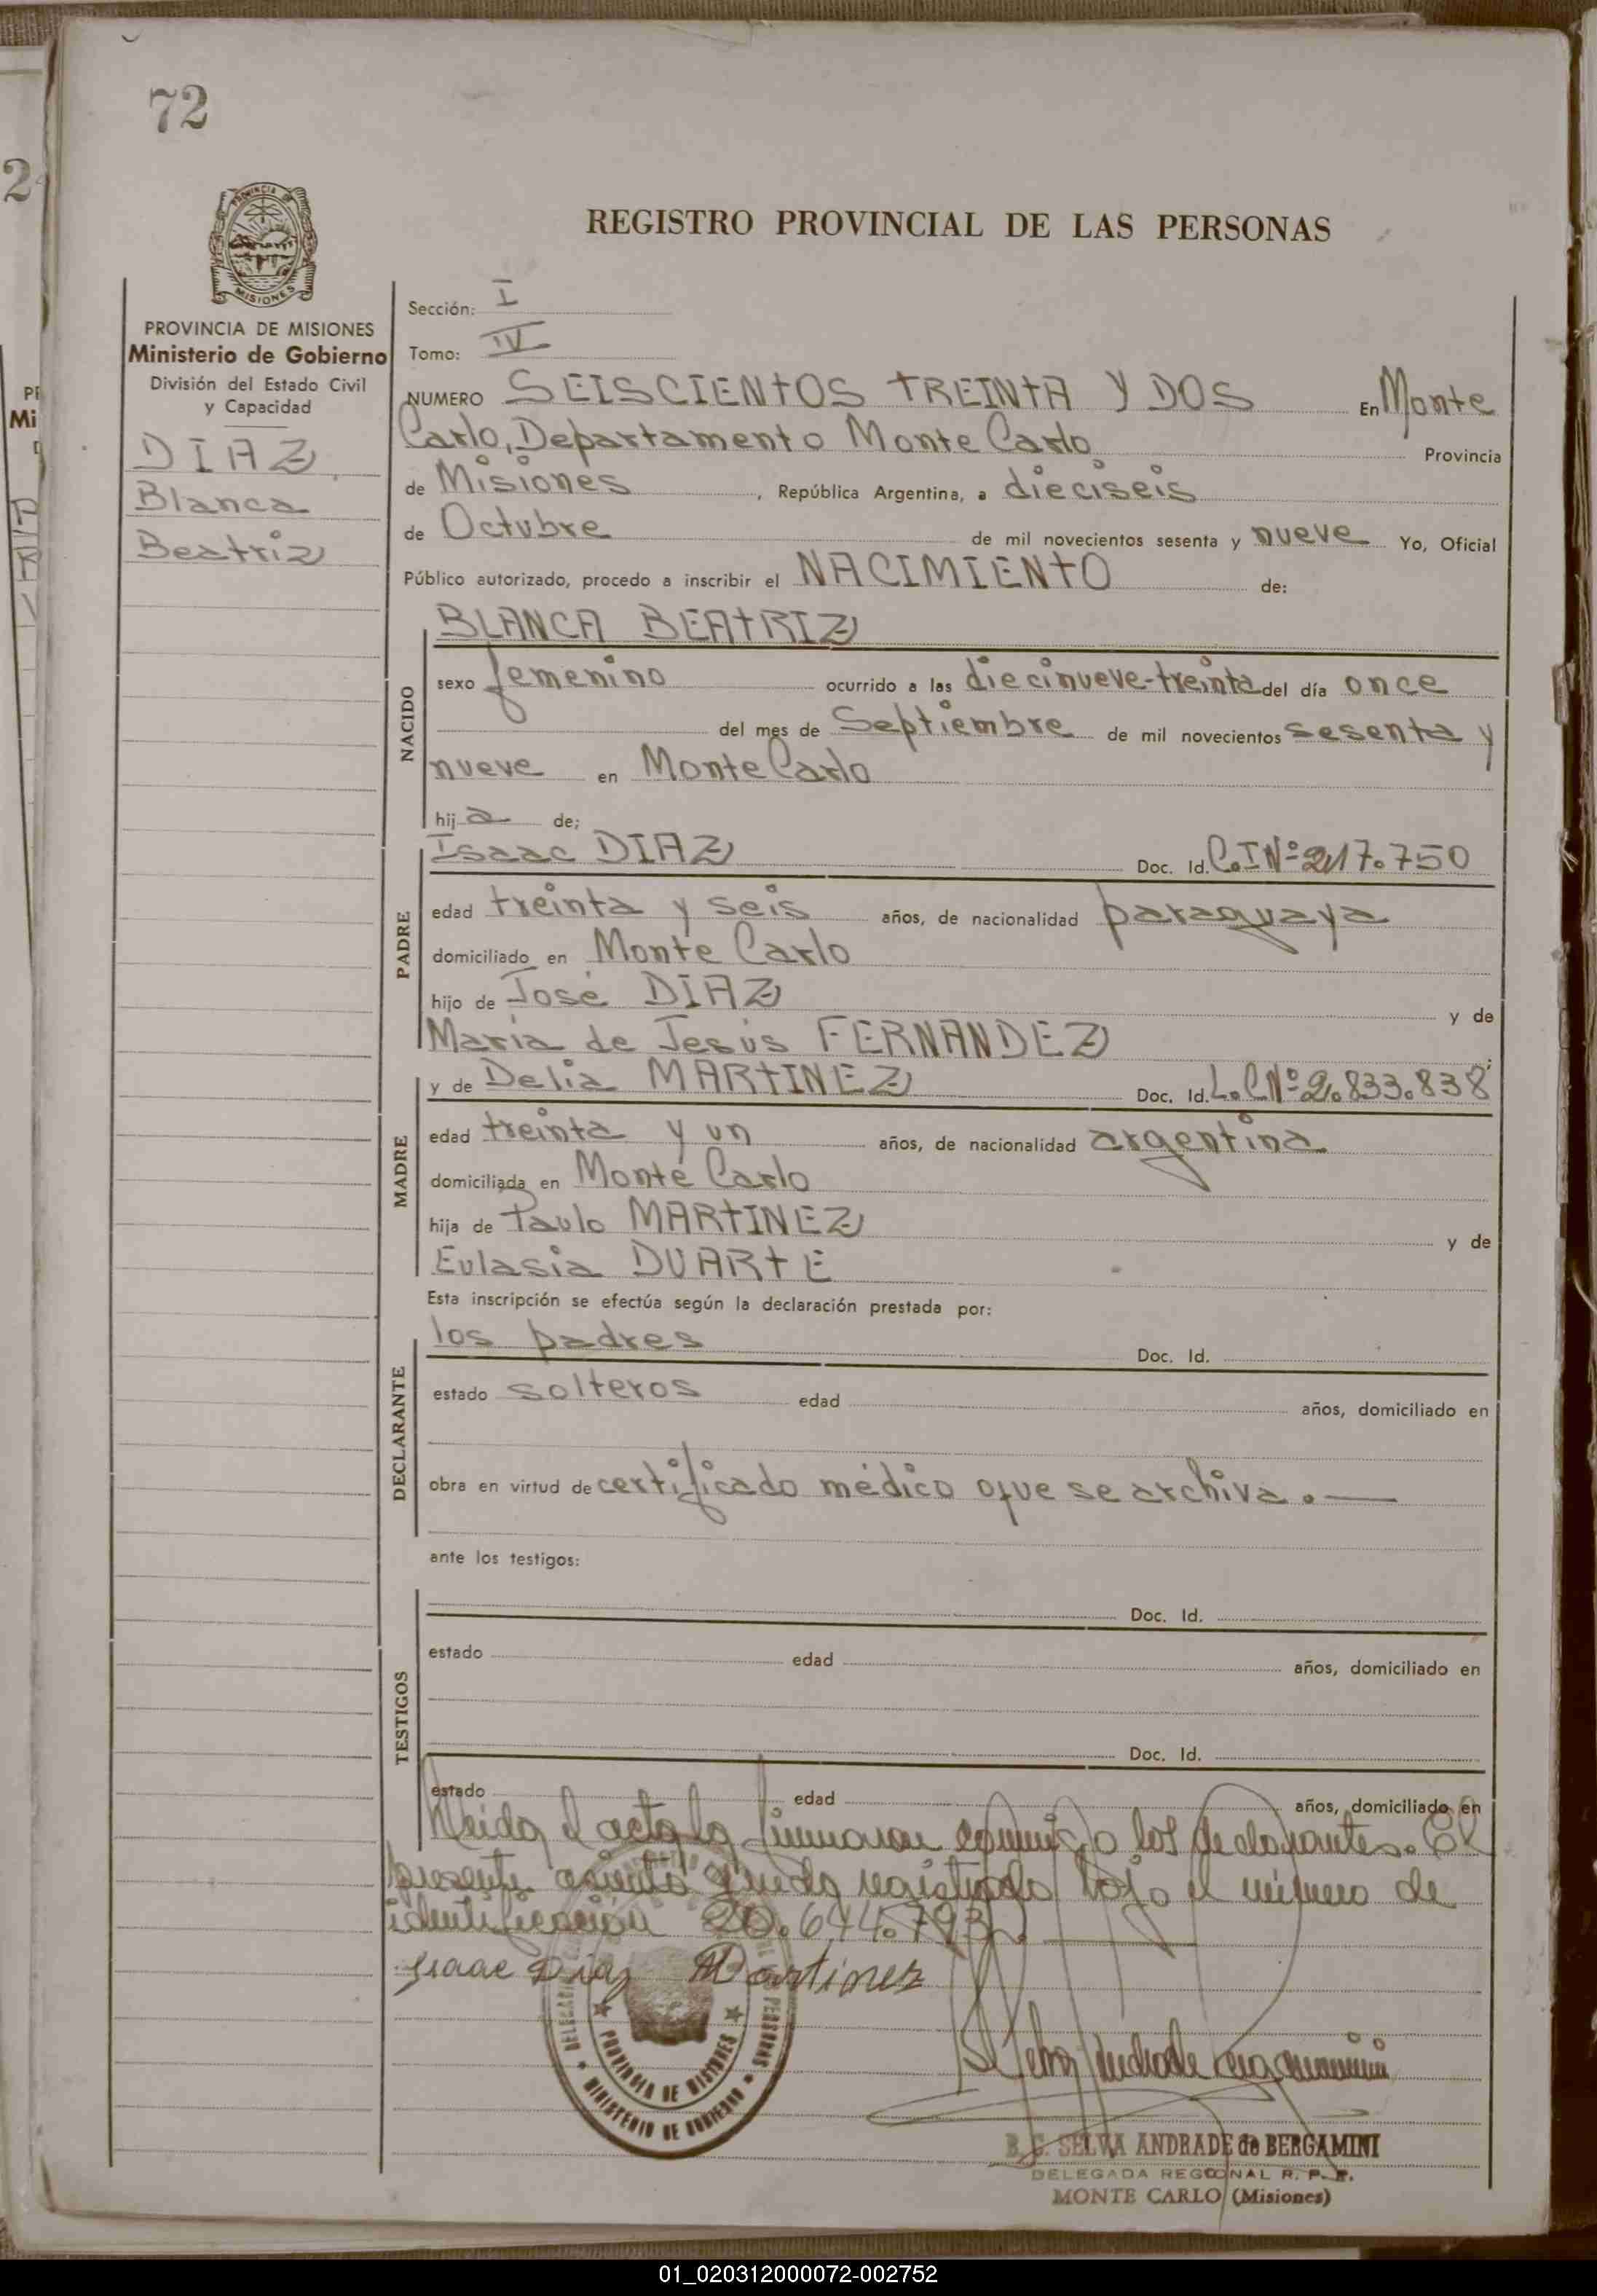 72
REGISTRO PROVINCIAL DE LAS PERSONAS
PROVINCIA
MISIONES
PROVINCIA DE MISIONES
Ministerio de Gobierno
División del Estado Civil
y Capacidad
DIAZ
Blanca
Beatriz
Sección: I
Tomo: IV
NUMERO SEISCIENTOS TREINTA Y DOS En Monte
Carlo, Departamento Monte Carlo Provincia
de Misiones, República Argentina, a dieciseis
de Octubre de mil novecientos sesenta y nueve Yo, Oficial
Público autorizado, procedo a inscribir el NACIMIENTO de:
BLANCA BEATRIZ
NACIDO
sexo femenino ocurrido a las diecinueve-treinta del día once
del mes de Septiembre de mil novecientos sesenta y
nueve en Monte Carlo
hija de;
PADRE
Isaac DIAZ Doc. Id. C.I Nº 217.750
edad treinta y seis años, de nacionalidad paraguaya
domiciliado en Monte Carlo
hijo de José DIAZ y de
María de Jesús FERNANDEZ
MADRE
y de Delia MARTINEZ Doc. Id. L.C Nº 2.833.838
edad treinta y un años, de nacionalidad argentina
domiciliada en Monte Carlo
hija de Paulo MARTINEZ y de
Eulasia DUARTE
Esta inscripción se efectúa según la declaración prestada por:
DECLARANTE
los padres Doc. Id.
estado solteros edad años, domiciliado en
obra en virtud de certificado médico que se archiva.—
ante los testigos:
TESTIGOS
Doc. Id.
estado edad años, domiciliado en
Doc. Id.
estado edad años, domiciliado en
Leida el acta la firmaron conmigo los declarantes. El
presente asiento queda registrado bajo el número de
identificación 20.644.793
Isaac Diaz Martinez
PROVINCIA DE MISIONES
MINISTERIO DE GOBIERNO
B. C. SELVA ANDRADE de BERGAMINI
DELEGADA REGIONAL R. P. P.
MONTE CARLO (Misiones)
01_020312000072-002752